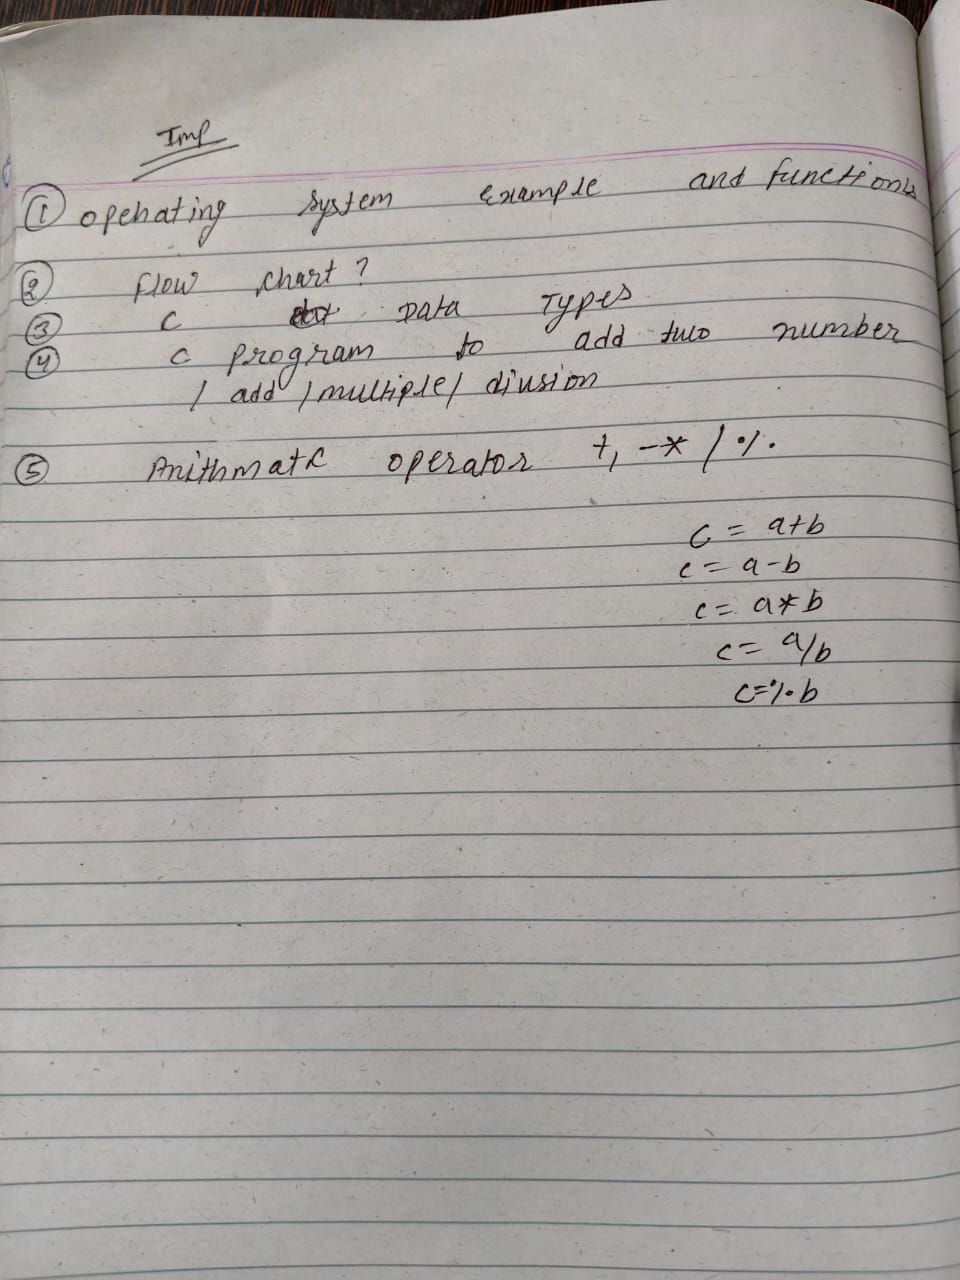 Imp
① operating system example and functions
② flow chart ?
③ c Data Types
④ c program to add two number
/ add / multiple / divsion
⑤ Arithmatic operator +, - * / %
c = a+b
c = a-b
c = a*b
c = a/b
c=%b